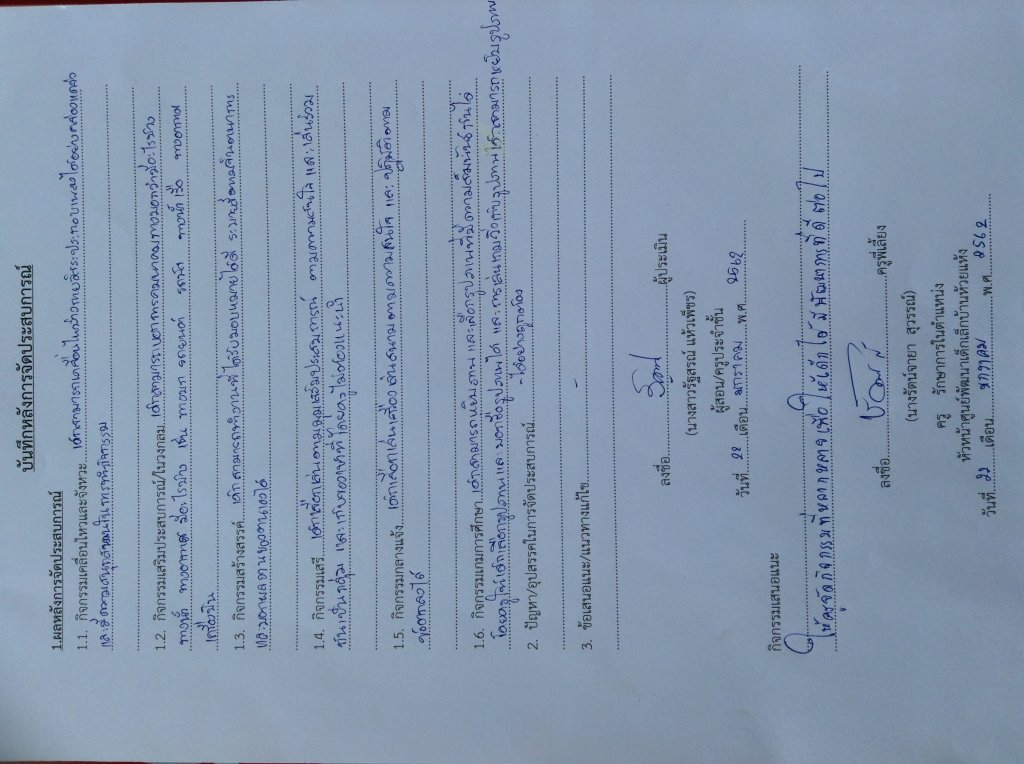 บันทึกหลังการจัดประสบการณ์
1.ผลหลังการจัดประสบการณ์
1.1. กิจกรรมเคลื่อนไหวและจังหวะ. เด็กสามารถเคลื่อนไหวร่างกายอิสระประกอบเพลงได้อย่างคล่องแคล่ว
และมีความสนุกสนานในการทำกิจกรรม
1.2. กิจกรรมเสริมประสบการณ์/ในวงกลม. เด็กสามารถบอกการคมนาคมทางบกว่ามีอะไรบ้าง
ทางน้ำ ทางอากาศ มีอะไรบ้าง เช่น ทางบก รถยนต์ รถไฟ ทางน้ำ เรือ ทางอากาศ
เครื่องบิน
1.3. กิจกรรมสร้างสรรค์. เด็กสามารถทำงานที่ได้รับมอบหมายได้ดี ระบายสีตามจินตนาการ
และบอกผลงานของตนเองได้
1.4. กิจกรรมเสรี. เด็กเลือกเล่นตามมุมเสริมประสบการณ์ ตามความสนใจ และเล่นร่วม
กันเป็นกลุ่ม และเก็บของเข้าที่ได้อย่างถูกต้อง
1.5. กิจกรรมกลางแจ้ง. เด็กเลือกเล่นเครื่องเล่นสนามตามความสนใจ และปฏิบัติตาม
ข้อตกลงได้
1.6. กิจกรรมเกมการศึกษา. เด็กสามารถ และเลือกรูปภาพที่มีความสัมพันธ์กันได้
โดยครูให้เด็กเลือกรูปภาพและบอกชื่อรูปภาพได้ และการเล่นเกม เด็กสามารถหยิบรูปภาพ
ได้อย่างถูกต้อง
2. ปัญหา/อุปสรรคในการจัดประสบการณ์. -
3. ข้อเสนอแนะ/แนวทางแก้ไข. -
ลงชื่อ ผู้ประเมิน
(นางสาวรัฐสรณ์ แห้วเพ็ชร)
ผู้สอน/ครูประจำชั้น
วันที่ 22 เดือน มกราคม พ.ศ. 2562
กิจกรรมเสนอแนะ
ให้ครูจัดกิจกรรมที่หลากหลายเพื่อให้เด็กได้มีพัฒนาการที่ดีต่อไป
ลงชื่อ ครูพี่เลี้ยง
(นางรัตน์จายา สุวรรณ์)
ครู รักษาการในตำแหน่ง
หัวหน้าศูนย์พัฒนาเด็กเล็กบ้านห้วยแห้ง
วันที่ 22 เดือน มกราคม พ.ศ. 2562